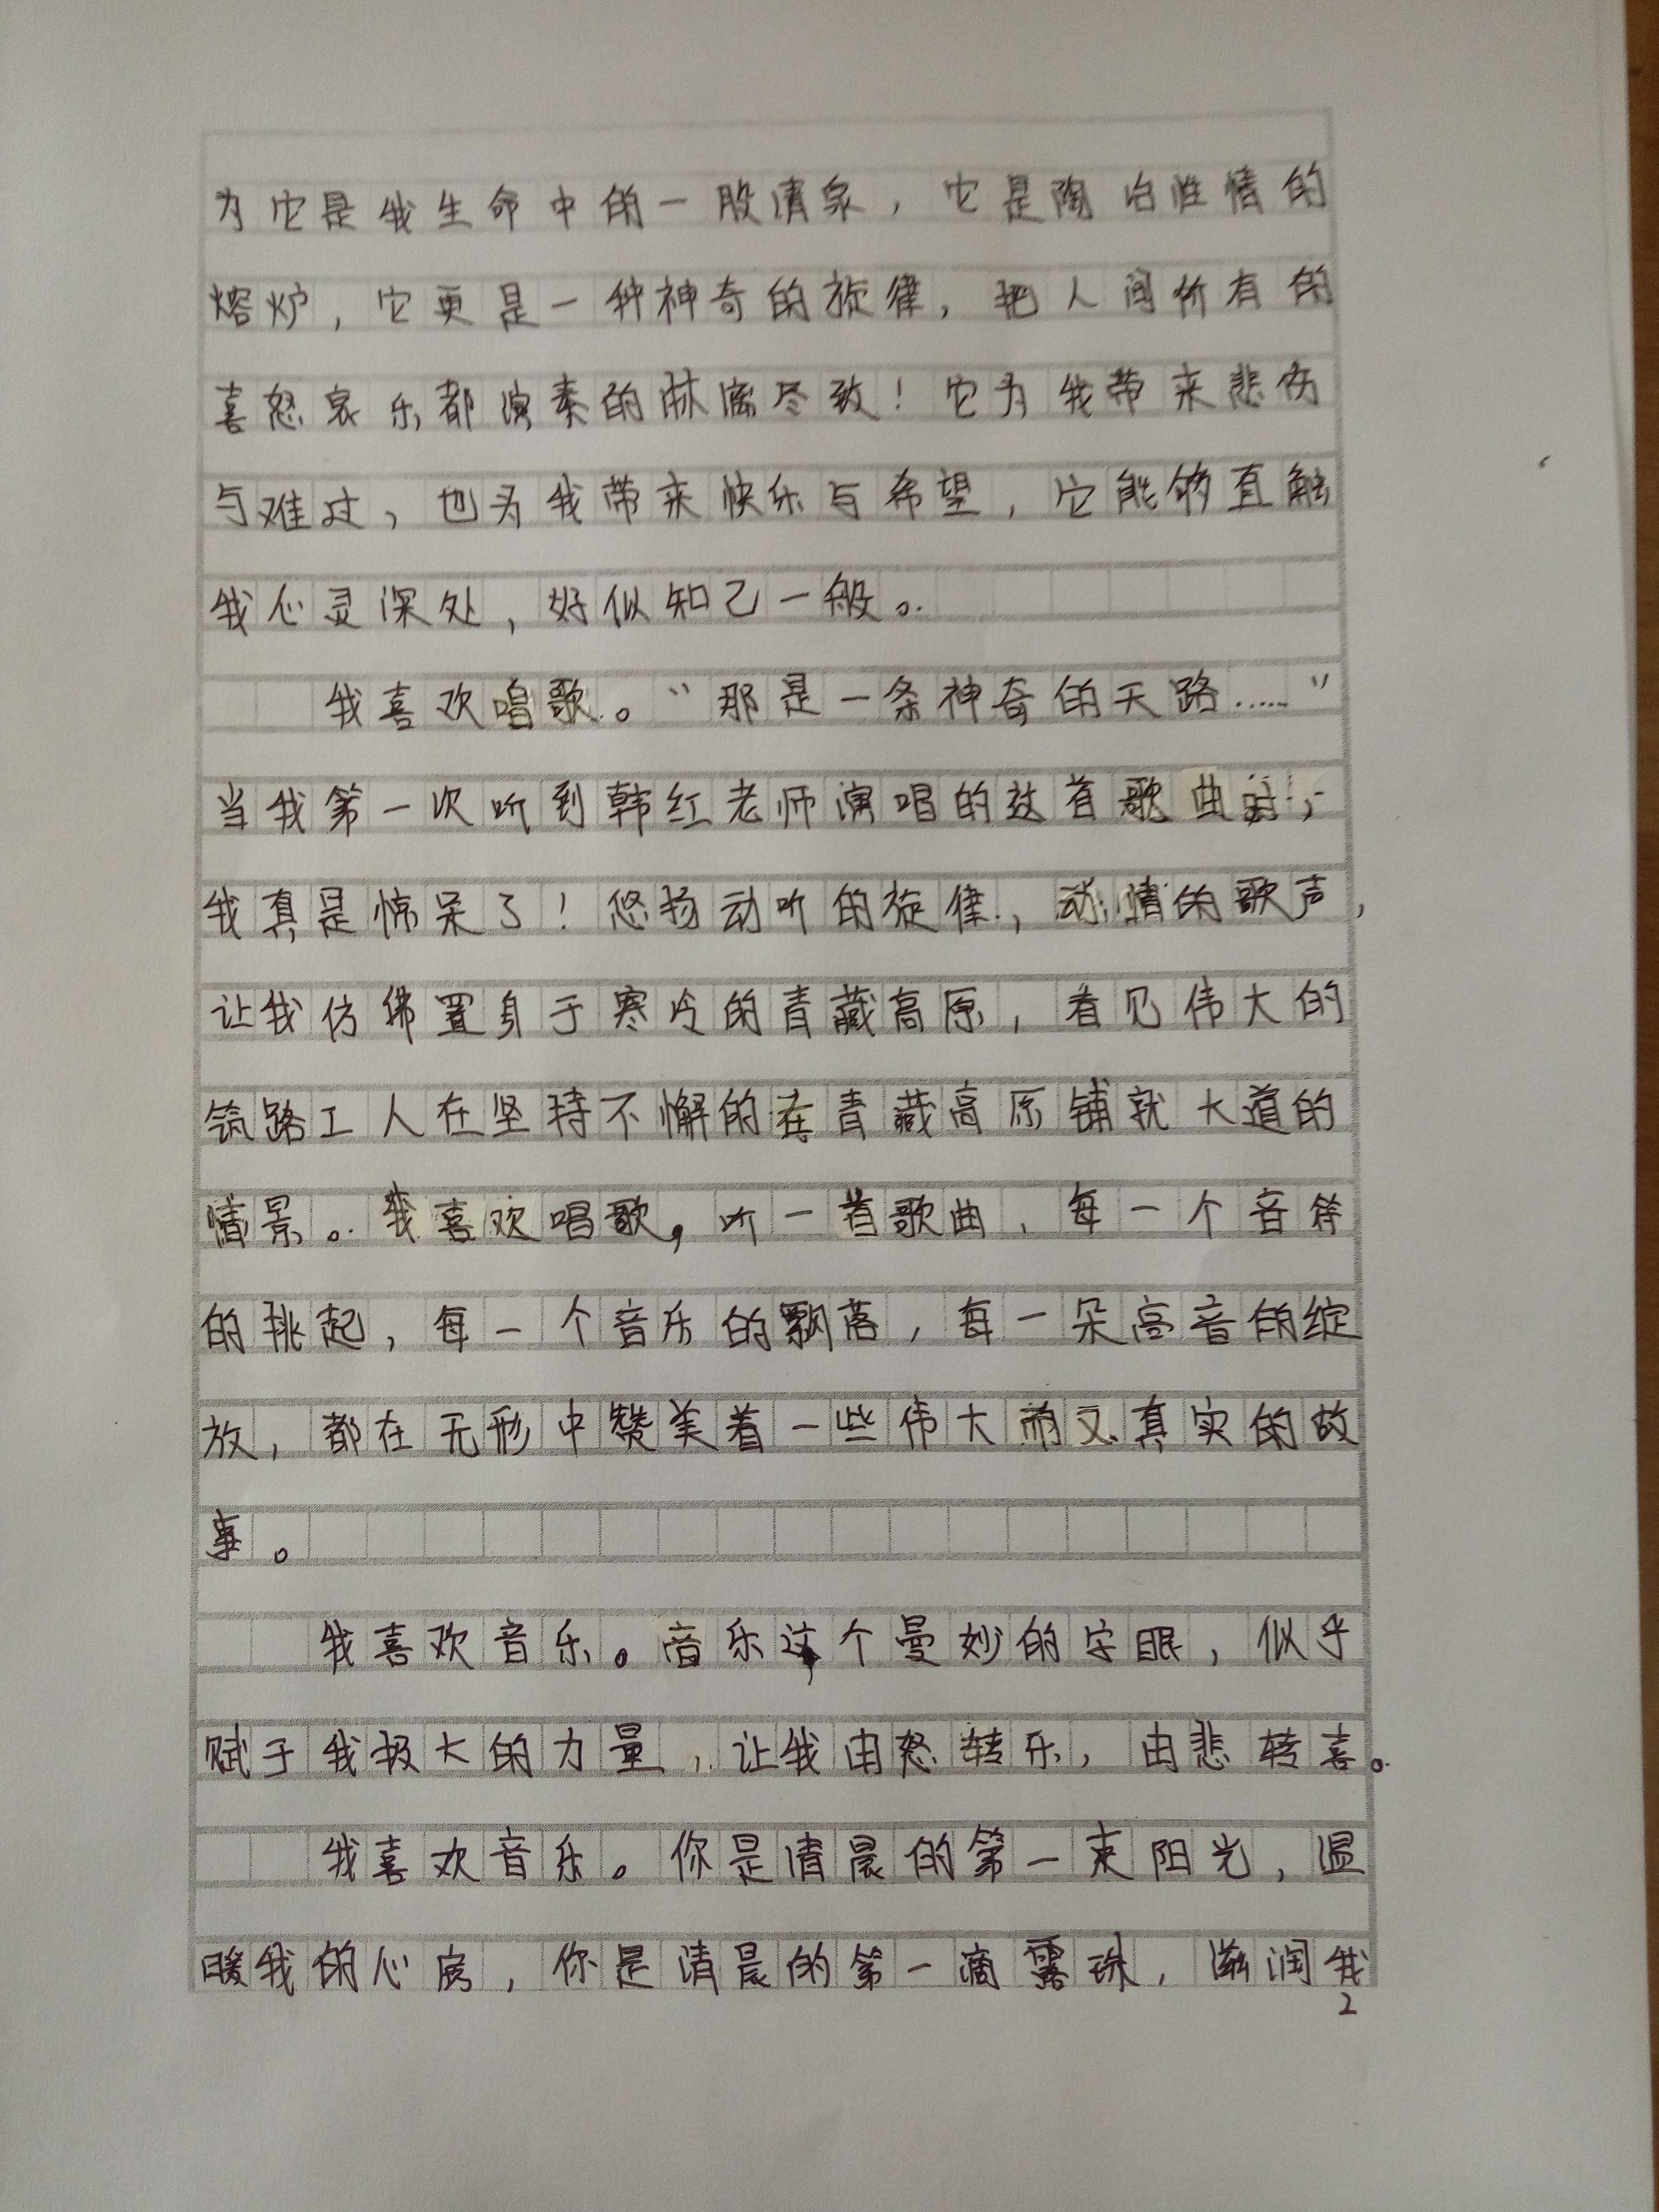 为它是我生命中的一股清泉，它是陶冶性情的
熔炉，它更是一种神奇的旋律，把人间所有的
喜怒哀乐都演奏的淋漓尽致！它为我带来悲伤
与难过，也为我带来快乐与希望，它能够直触
我心灵深处，好似知己一般。
我喜欢唱歌。“那是一条神奇的天路……”
当我第一次听到韩红老师演唱的这首歌曲时，
我真是惊呆了！悠扬动听的旋律，动情的歌声，
让我仿佛置身于寒冷的青藏高原，看见伟大的
筑路工人在坚持不懈的在青藏高原铺就大道的
情景。我喜欢唱歌，听一首歌曲，每一个音符
的挑起，每一个音乐的飘落，每一朵高音的绽
放，都在无形中赞美着一些伟大而又真实的故
事。
我喜欢音乐。音乐这个曼妙的字眼，似乎
赋于我极大的力量，让我由怒转乐，由悲转喜。
我喜欢音乐。你是清晨的第一束阳光，温
暖我的心房，你是清晨的第一滴露珠，滋润我
2